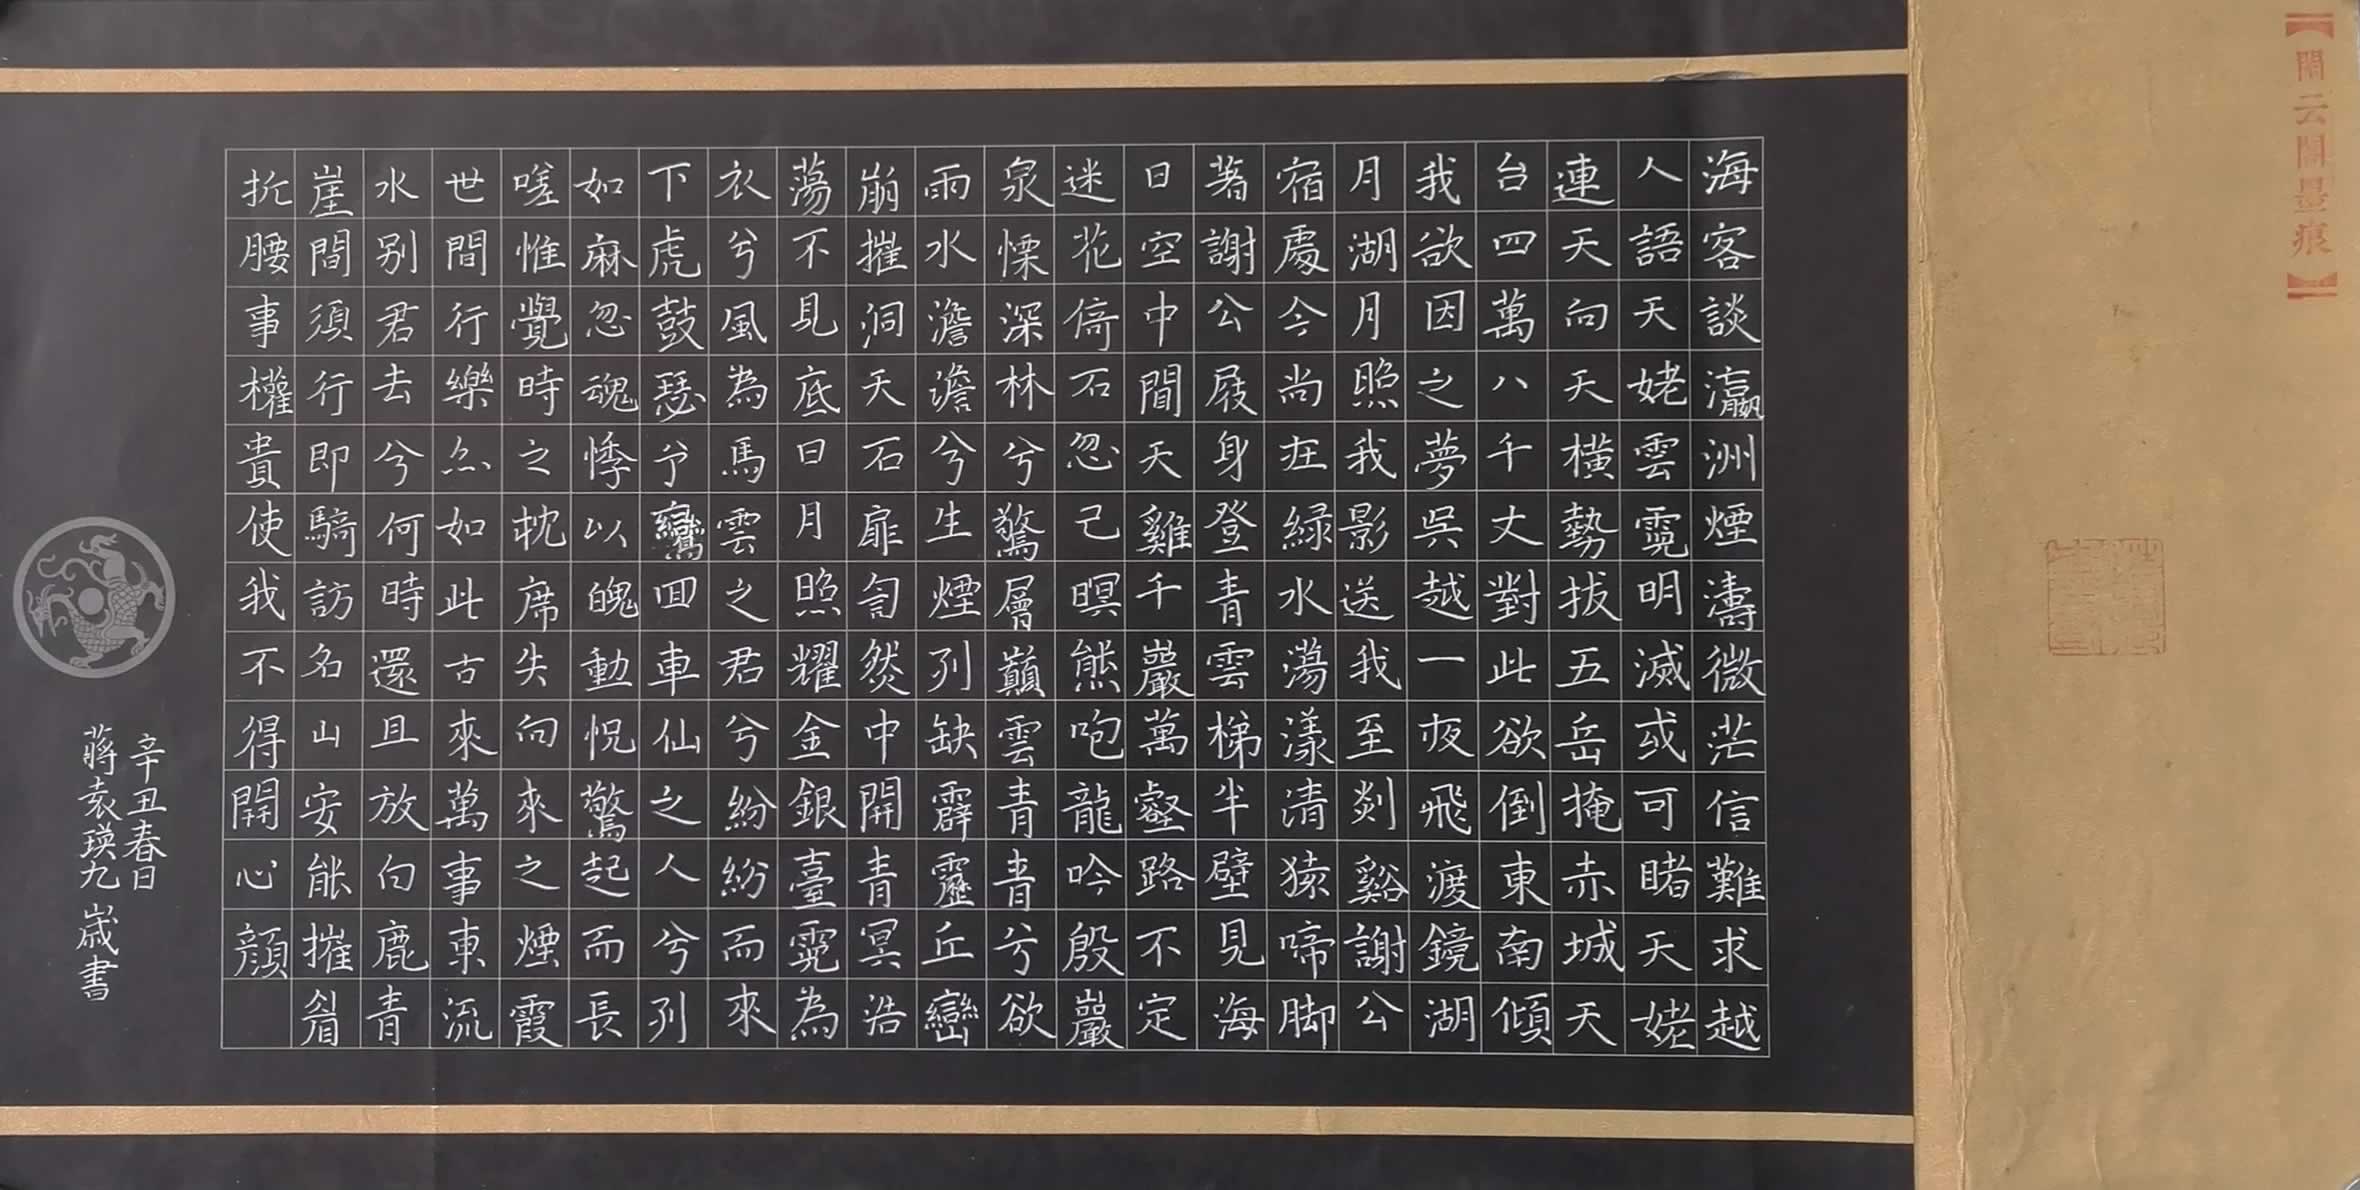 云 墨痕
海客談瀛洲煙濤微茫信難求越
人語天姥雲霓明滅或可睹天姥
連天向天橫勢拔五岳掩赤城天
台四萬八千丈對此欲倒東南傾
我欲因之夢吳越一夜飛渡鏡湖
月湖月照我影送我至剡谿謝公
宿處今尚在綠水蕩漾清猿啼脚
著謝公屐身登青雲梯半壁見海
日空中聞天雞千巖萬壑路不定
迷花倚石忽已暝熊咆龍吟殷巖
泉慄深林兮驚層巔雲青青兮欲
雨水澹澹兮生煙列缺霹靂丘巒
崩摧洞天石扉訇然中開青冥浩
蕩不見底日月照耀金銀臺霓為
衣兮風為馬雲之君兮紛紛而來
下虎鼓瑟兮鸞回車仙之人兮列
如麻忽魂悸以魄動怳驚起而長
嗟惟覺時之枕席失向來之煙霞
世間行樂亦如此古來萬事東流
水別君去兮何時還且放白鹿青
崖間須行即騎訪名山安能摧眉
折腰事權貴使我不得開心顏
辛丑春日
蔣袁瑛九歲書